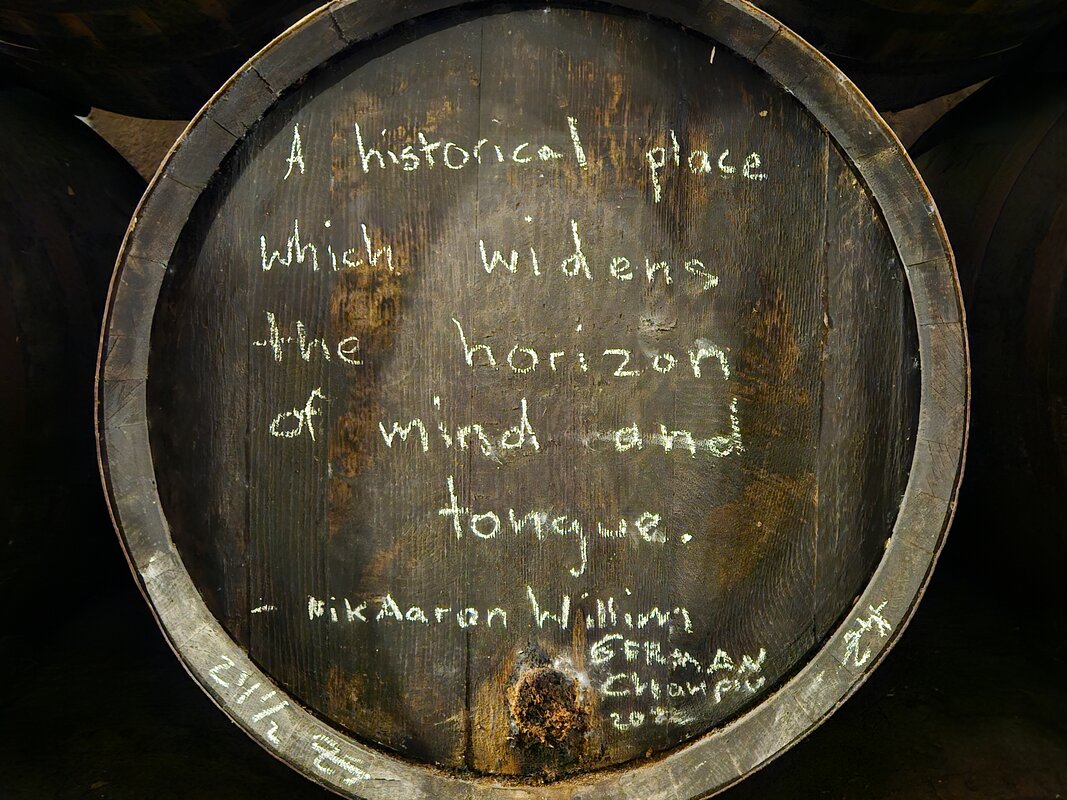 A historical place
which widens
the horizon
of mind and
tongue.
- Nik Aaron Willim
GERMAN
Champio
2022
24 1/2